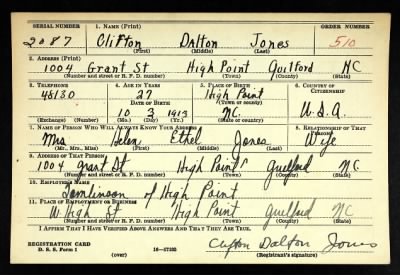 SERIAL NUMBER 1. NAME (Print) ORDER NUMBER
2087 Clifton Dalton Jones 510
(First) (Middle) (Last)
2. ADDRESS (Print)
1004 Grant St High Point Guilford NC
(Number and street or R. F. D. number) (Town) (County) (State)
3. TELEPHONE 4. AGE IN YEARS 5. PLACE OF BIRTH 6. COUNTRY OF CITIZENSHIP
48130 27 High Point
DATE OF BIRTH (Town or county)
10 3 1913 NC. U.S.A.
(Exchange) (Number) (Mo.) (Day) (Yr.) (State or country)
7. NAME OF PERSON WHO WILL ALWAYS KNOW YOUR ADDRESS 8. RELATIONSHIP OF THAT PERSON
Mrs Helen Ethel Jones Wife
(Mr., Mrs., Miss) (First) (Middle) (Last)
9. ADDRESS OF THAT PERSON
1004 Grant St High Point Guilford NC
(Number and street or R. F. D. number) (Town) (County) (State)
10. EMPLOYER'S NAME
Tomlinson of High Point
11. PLACE OF EMPLOYMENT OR BUSINESS
W High St High Point Guilford NC
(Number and street or R. F. D. number) (Town) (County) (State)
I AFFIRM THAT I HAVE VERIFIED ABOVE ANSWERS AND THAT THEY ARE TRUE.
REGISTRATION CARD Clifton Dalton Jones
D. S. S. Form 1 (over) (Registrant's signature)